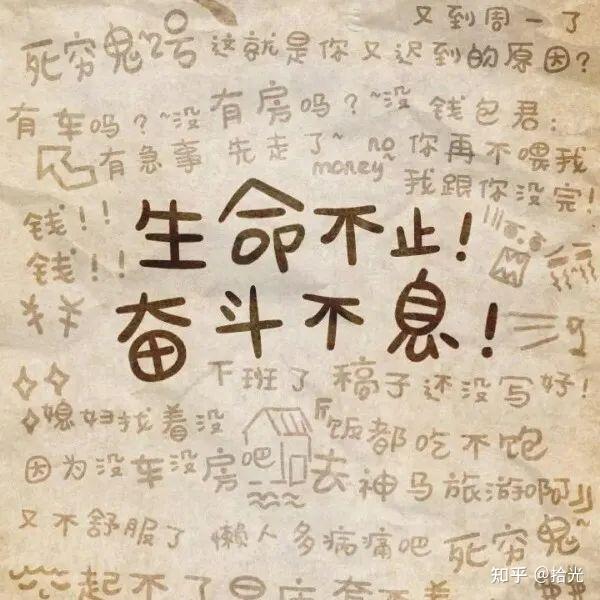 又到周一了
死穷鬼~2号 这就是你又迟到的原因?
有车吗?~没 有房吗?~没 钱包君:
有急事 先走了~ no money~ 你再不喂我
我跟你没完!
钱!!
钱!!
生命不止!
奋斗不息!
下班了 稿子还没写好!
媳妇找着没
饭都吃不饱
因为没车没房吧 去神马旅游啊
又不舒服了 懒人多病痛吧 死穷鬼~
起不了
知乎 @拾光